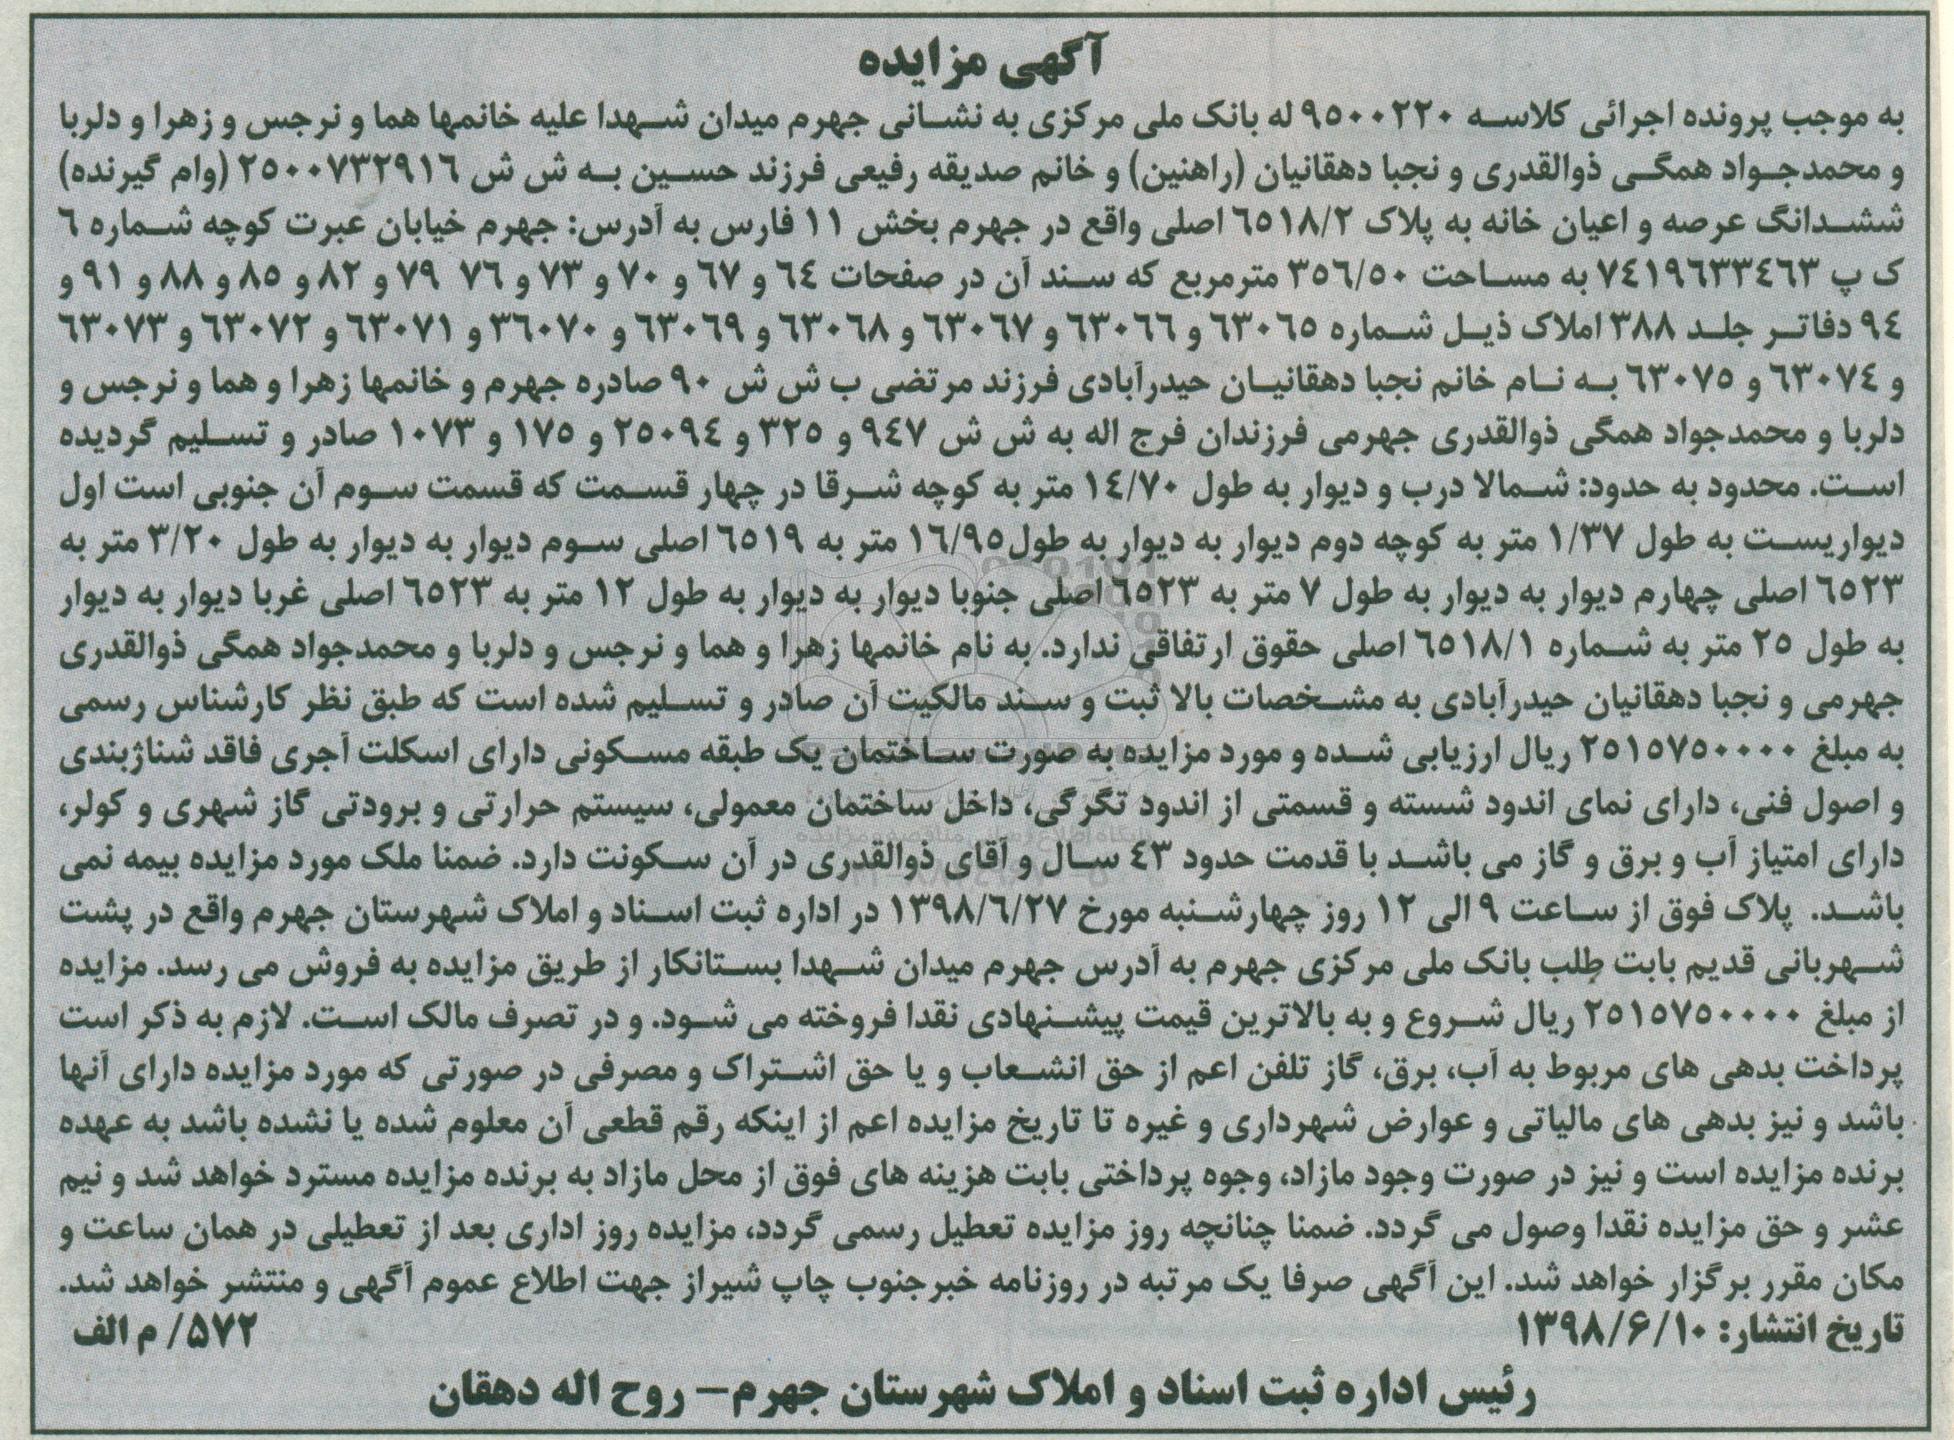 آگهی مزایده
به موجب پرونده اجرائی کلاسه ۹۵۰۰۲۲۰ له بانک ملی مرکزی به نشانی جهرم میدان شهدا علیه خانمها هما و نرجس و زهرا و دلربا
و محمدجواد همگی ذوالقدری و نجبا دهقانیان (راهنین) و خانم صدیقه رفیعی فرزند حسین به ش ش ۲۵۰۰۷۳۲۹۱۶ (وام گیرنده)
ششدانگ عرصه و اعیان خانه به پلاک ۶۵۱۸/۲ اصلی واقع در جهرم بخش ۱۱ فارس به آدرس: جهرم خیابان عبرت کوچه شماره ۶
ک پ ۷۴۱۹۶۳۳۴۶۳ به مساحت ۳۵۶/۵۰ مترمربع که سند آن در صفحات ۶۴ و ۶۷ و ۷۰ و ۷۳ و ۷۶ ۷۹ و ۸۲ و ۸۵ و ۸۸ و ۹۱ و
۹۴ دفاتر جلد ۳۸۸ املاک ذیل شماره ۶۳۰۶۵ و ۶۳۰۶۶ و ۶۳۰۶۷ و ۶۳۰۶۸ و ۶۳۰۶۹ و ۳۶۰۷۰ و ۶۳۰۷۱ و ۶۳۰۷۲ و ۶۳۰۷۳
و ۶۳۰۷۴ و ۶۳۰۷۵ به نام خانم نجبا دهقانیان حیدرآبادی فرزند مرتضی ب ش ش ۹۰ صادره جهرم و خانمها زهرا و هما و نرجس و
دلربا و محمدجواد همگی ذوالقدری جهرمی فرزندان فرج اله به ش ش ۹۴۷ و ۳۲۵ و ۲۵۰۹۴ و ۱۷۵ و ۱۰۷۳ صادر و تسلیم گردیده
است. محدود به حدود: شمالا درب و دیوار به طول ۱۴/۷۰ متر به کوچه شرقا در چهار قسمت که قسمت سوم آن جنوبی است اول
دیواریست به طول ۱/۳۷ متر به کوچه دوم دیوار به دیوار به طول۱۶/۹۵ متر به ۶۵۱۹ اصلی سوم دیوار به دیوار به طول ۳/۲۰ متر به
۶۵۲۳ اصلی چهارم دیوار به دیوار به طول ۷ متر به ۶۵۲۳ اصلی جنوبا دیوار به دیوار به طول ۱۲ متر به ۶۵۲۳ اصلی غربا دیوار به دیوار
به طول ۲۵ متر به شماره ۶۵۱۸/۱ اصلی حقوق ارتفاقی ندارد. به نام خانمها زهرا و هما و نرجس و دلربا و محمدجواد همگی ذوالقدری
جهرمی و نجبا دهقانیان حیدرآبادی به مشخصات بالا ثبت و سند مالکیت آن صادر و تسلیم شده است که طبق نظر کارشناس رسمی
به مبلغ ۲۵۱۵۷۵۰۰۰۰ ریال ارزیابی شده و مورد مزایده به صورت ساختمان یک طبقه مسکونی دارای اسکلت آجری فاقد شناژبندی
و اصول فنی، دارای نمای اندود شسته و قسمتی از اندود تگرگی، داخل ساختمان معمولی، سیستم حرارتی و برودتی گاز شهری و کولر،
دارای امتیاز آب و برق و گاز می باشد با قدمت حدود ۴۳ سال و آقای ذوالقدری در آن سکونت دارد. ضمنا ملک مورد مزایده بیمه نمی
باشد. پلاک فوق از ساعت ۹ الی ۱۲ روز چهارشنبه مورخ ۱۳۹۸/۶/۲۷ در اداره ثبت اسناد و املاک شهرستان جهرم واقع در پشت
شهربانی قدیم بابت طلب بانک ملی مرکزی جهرم به آدرس جهرم میدان شهدا بستانکار از طریق مزایده به فروش می رسد. مزایده
از مبلغ ۲۵۱۵۷۵۰۰۰۰ ریال شروع و به بالاترین قیمت پیشنهادی نقدا فروخته می شود. و در تصرف مالک است. لازم به ذکر است
پرداخت بدهی های مربوط به آب، برق، گاز تلفن اعم از حق انشعاب و یا حق اشتراک و مصرفی در صورتی که مورد مزایده دارای آنها
باشد و نیز بدهی های مالیاتی و عوارض شهرداری و غیره تا تاریخ مزایده اعم از اینکه رقم قطعی آن معلوم شده یا نشده باشد به عهده
برنده مزایده است و نیز در صورت وجود مازاد، وجوه پرداختی بابت هزینه های فوق از محل مازاد به برنده مزایده مسترد خواهد شد و نیم
عشر و حق مزایده نقدا وصول می گردد. ضمنا چنانچه روز مزایده تعطیل رسمی گردد، مزایده روز اداری بعد از تعطیلی در همان ساعت و
مکان مقرر برگزار خواهد شد. این آگهی صرفا یک مرتبه در روزنامه خبرجنوب چاپ شیراز جهت اطلاع عموم آگهی و منتشر خواهد شد.
تاریخ انتشار: ۱۳۹۸/۶/۱۰ ۵۷۲/ م الف
رئیس اداره ثبت اسناد و املاک شهرستان جهرم– روح اله دهقان